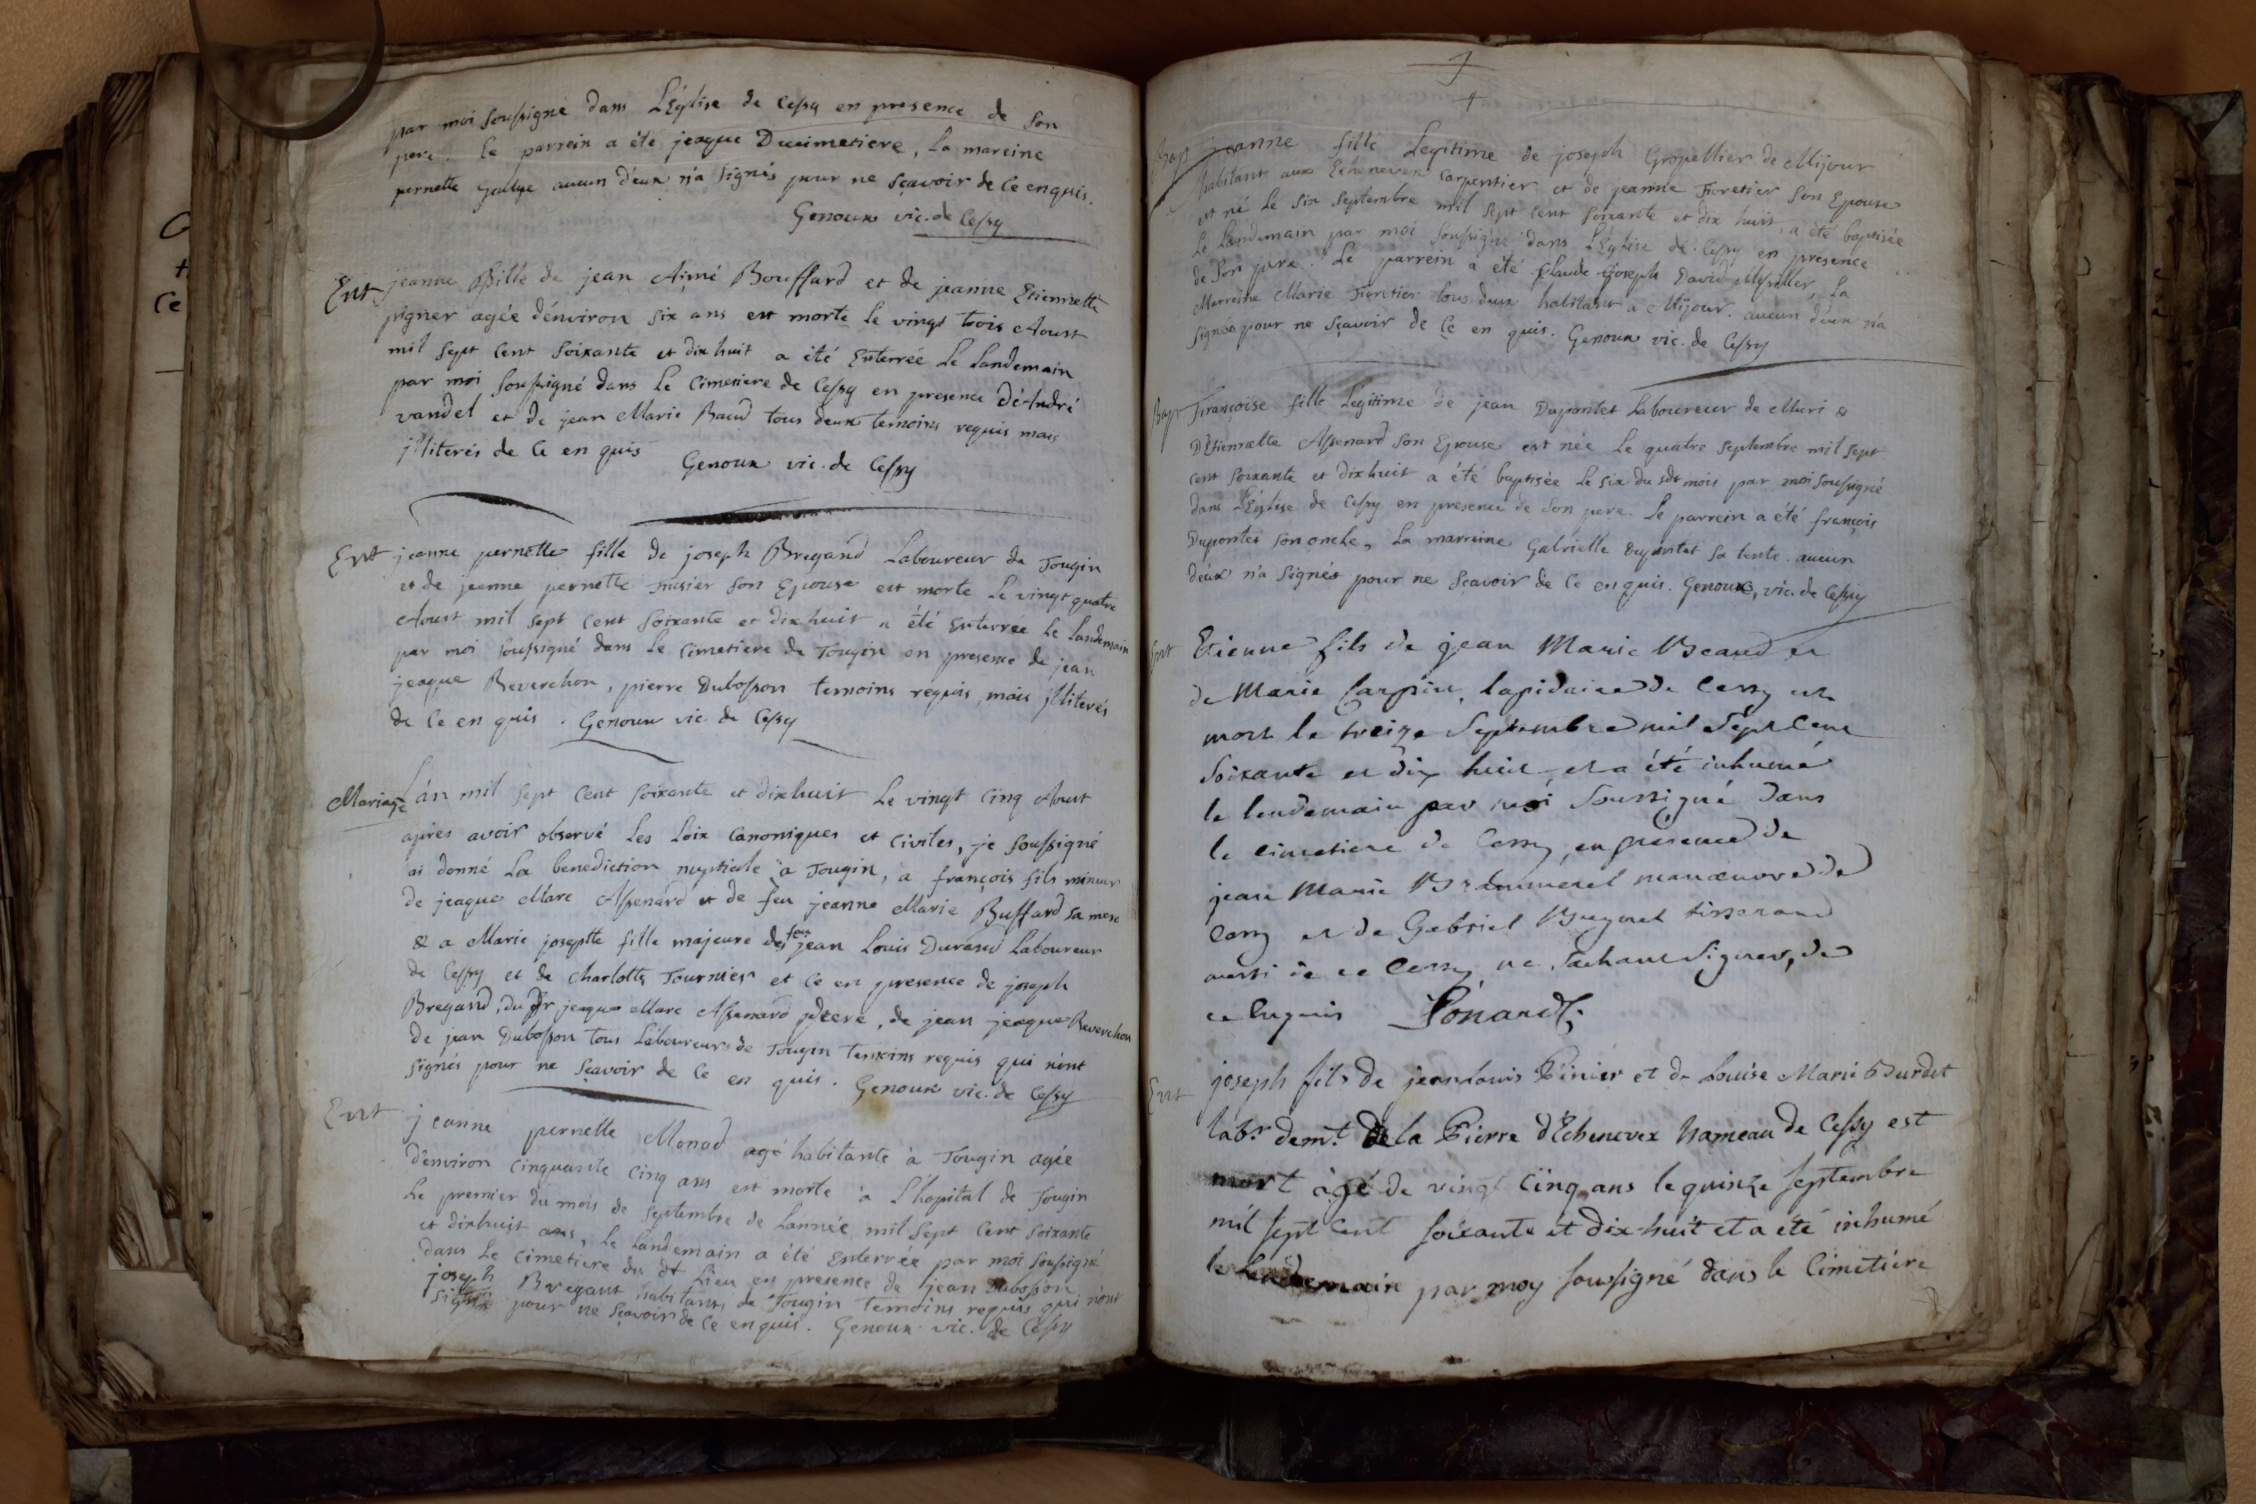 par moi soussigné dans L'Eglise de Cessy en presence de son
pere. Le parrein a été jeaque Ducimetiere, La mareine
pernette aucun d'eux n'a signés pour ne sçavoir de ce enquis.
Genoux vic. de Cessy
Ent jeanne fille de jean Aimé Bouffard et de jeanne Etiennette
pigner agée d'environ six ans est morte le vingt trois Aoust
mil sept cent soixante et dixhuit a été Enterrée Le Landemain
par moi soussigné dans Le Cimetiere de Cessy en presence D'André
vandel et de jean Marie Baud tous deux temoins requis mais
jlliterés de Ce en quis Genoux vic. de Cessy
Ent jeanne pernette fille de joseph Bregand Laboureur de Tougin
et de jeanne pernette son Epouse est morte Le vingt quatre
Aoust mil sept cent soixante et dixhuit a été Enterree Le Landemain
par moi soussigné dans Le Cimetiere de Tougin en presence de jean
jeaque Reverchon, pierre Dubosson temoins requis, mais jlliterés
de Ce en quis. Genoux vic. de Cessy
Mariage L'an mil sept Cent soixante et dixhuit Le vingt Cinq Aoust
après avoir observé Les Loix Canoniques et Civiles, je soussigné
ai donné La benediction nuptiale à Tougin, a françois fils mineur
de jeaque Marc Assenard et de feu jeanne Marie Buffard sa mere
& a Marie josephte fille majeure de feu jean Louis Durand Laboureur
de Cessy et de Charlotte Tournier et Ce en presence de joseph
Bregand, du jeaque Marc Assenard pere, de jean jeaque Reverchon
de jean Dubosson tous Laboureurs de Tougin temoins requis qui n'ont
signés pour ne sçavoir de Ce en quis. Genoux vic. de Cessy
Ent jeanne pernette Monod agé habitante à Tougin agée
d'environ Cinquante Cinq ans est morte à L'hopital de Tougin
Le premier du mois de septembre de Lannée mil sept Cent soixante
et dixhuit ans, Le Landemain a été Enterrée par moi soussigné
dans Le Cimetiere du dt Lieu en presence de jean Dubosson
joseph Bregant habitans de Tougin temoins requis qui n'ont
signés pour ne sçavoir de Ce enquis. Genoux vic. de Cessy
Bap jeanne fille Legitime de joseph Gropellier de Mijour
habitant aux Echenevex Carpentier et de jeanne Fioretier son Epouse
est né Le six septembre mil sept cent soixante et dix huit, a été baptisée
Le Landemain par moi soussigné dans L'Eglise de Cessy en presence
de son pere. Le parrein a été Claude joseph David La
Marreine Marie Fioretier tous deux habitans a Mijour. aucun d'eux n'a
signés pour ne sçavoir de Ce en quis. Genoux vic. de Cessy
Bap Françoise fille Legitime de jean Dupontet Laboureur de Muri &
D'Etiennette Assenard son Epouse est née Le quatre septembre mil sept
cent soixante et dixhuit a été baptisée Le six du sdt mois par moi soussigné
dans L'Eglise de Cessy en presence de son pere. Le parrein a été françois
Dupontet son oncle, La marreine Gabrielle Dupontet sa tente. aucun
d'eux n'a signés pour ne sçavoir de Ce en quis. Genoux, vic. de Cessy
Ent Etienne fils de jean Marie Beaud et
de Marie Carpin, lapidaire de Cessy est
mort le treize Septembre mil Sept Cent
Soixante et dix huit et a été inhumé
le lendemain par moi Soussigné dans
le cimetiere de Cessy, en présence de
jean Marie manœuvre de
Cessy et de Gabriel tisserand
aussi de ce Cessy ne sachant signer, de
ce Enquis Ponard
Ent joseph fils de jean Louis Pinier et de Louise Marie Burdet
labr. demt. de la Pierre d'Echenevex hameau de Cessy est
mort âgé de vingt cinq ans le quinze septembre
mil sept cent soixante et dix-huit et a été inhumé
le lendemain par moy soussigné dans le Cimetiere